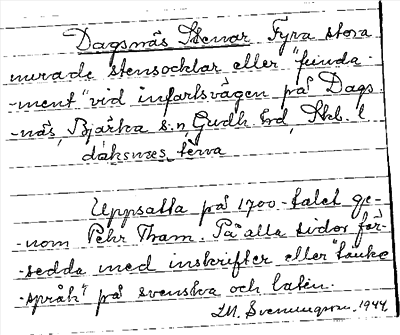 Dagsnäs Stenar Fyra stora
murade stensocklar eller "funda-
-ment" vid infartsvägen på Dags-
-näs, Bjärka s:n, Gudh. hd, Skbl. l
daksnæs
Uppsatta på 1700-talet ge-
-nom Pehr Tham. På alla sidor för-
-sedda med inskrifter eller "tanke
-språk" på svenska och latin.
1944